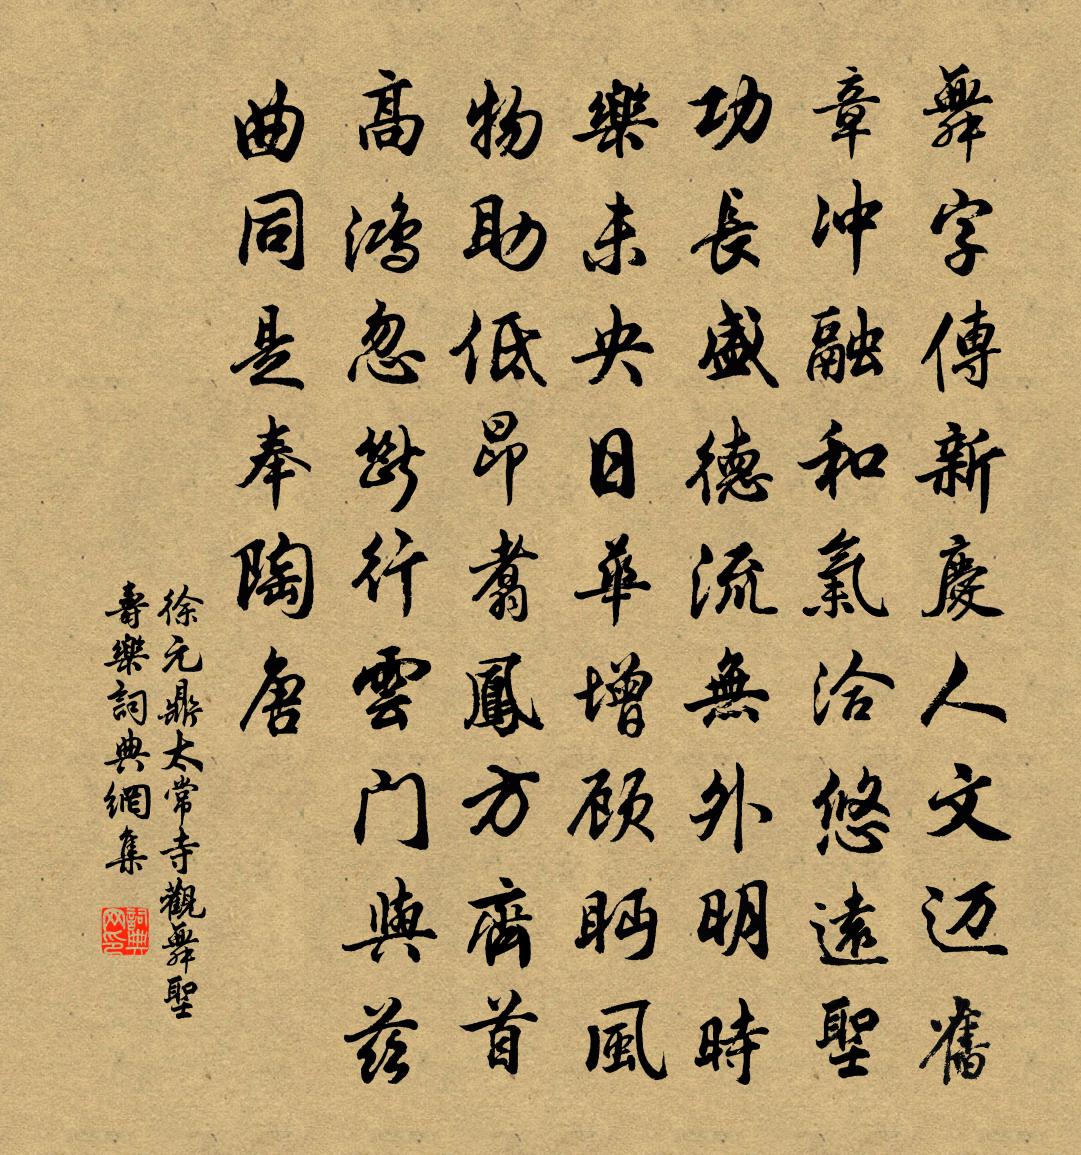 舞字傳新慶人文迈舊
章沖融和氣洽悠遠聖
功長盛德流無外明時
樂未央日華增顾眄風
物助低昂翥鳳方齊首
高鴻忽斷行雲门與兹
曲同是奉陶唐
徐元鼎太常寺觀舞聖
壽樂詞典網集
詞典网印